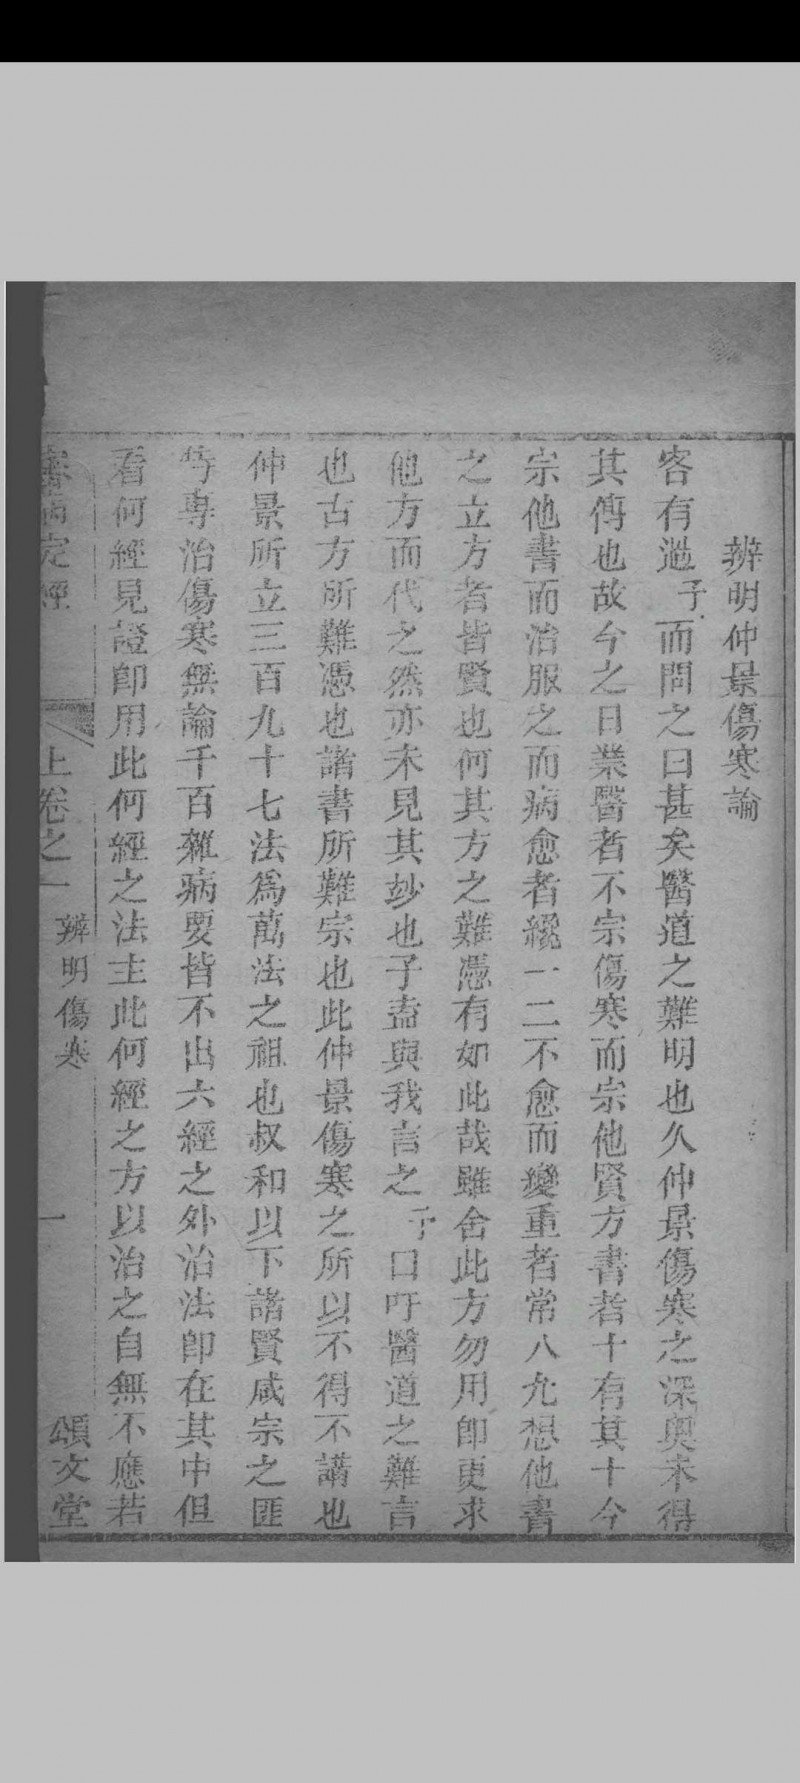 辨明仲景傷寒論
客有過予而問之曰甚矣醫道之難明也久仲景傷寒之深奧未得
其傳也故今之日業醫者不宗傷寒而宗他賢方書者十有其十今
宗他書而治服之而病愈者纔一二不愈而變重者常八九想他書
之立方者皆賢也何其方之難憑有如此哉雖舍此方勿用即更求
他方而代之然亦未見其玅也子盍與我言之予口吁醫道之難言
也古方所難憑也諸書所難宗也此仲景傷寒之所以不得不講也
仲景所立三百九十七法為萬法之祖也叔和以下諸賢咸宗之匪
專治傷寒無論千百雜病要皆不出六經之外治法即在其中但
看何經見證即用此何經之法主此何經之方以治之自無不應若
病定經 上卷之一 辨明傷寒 一 頌文堂